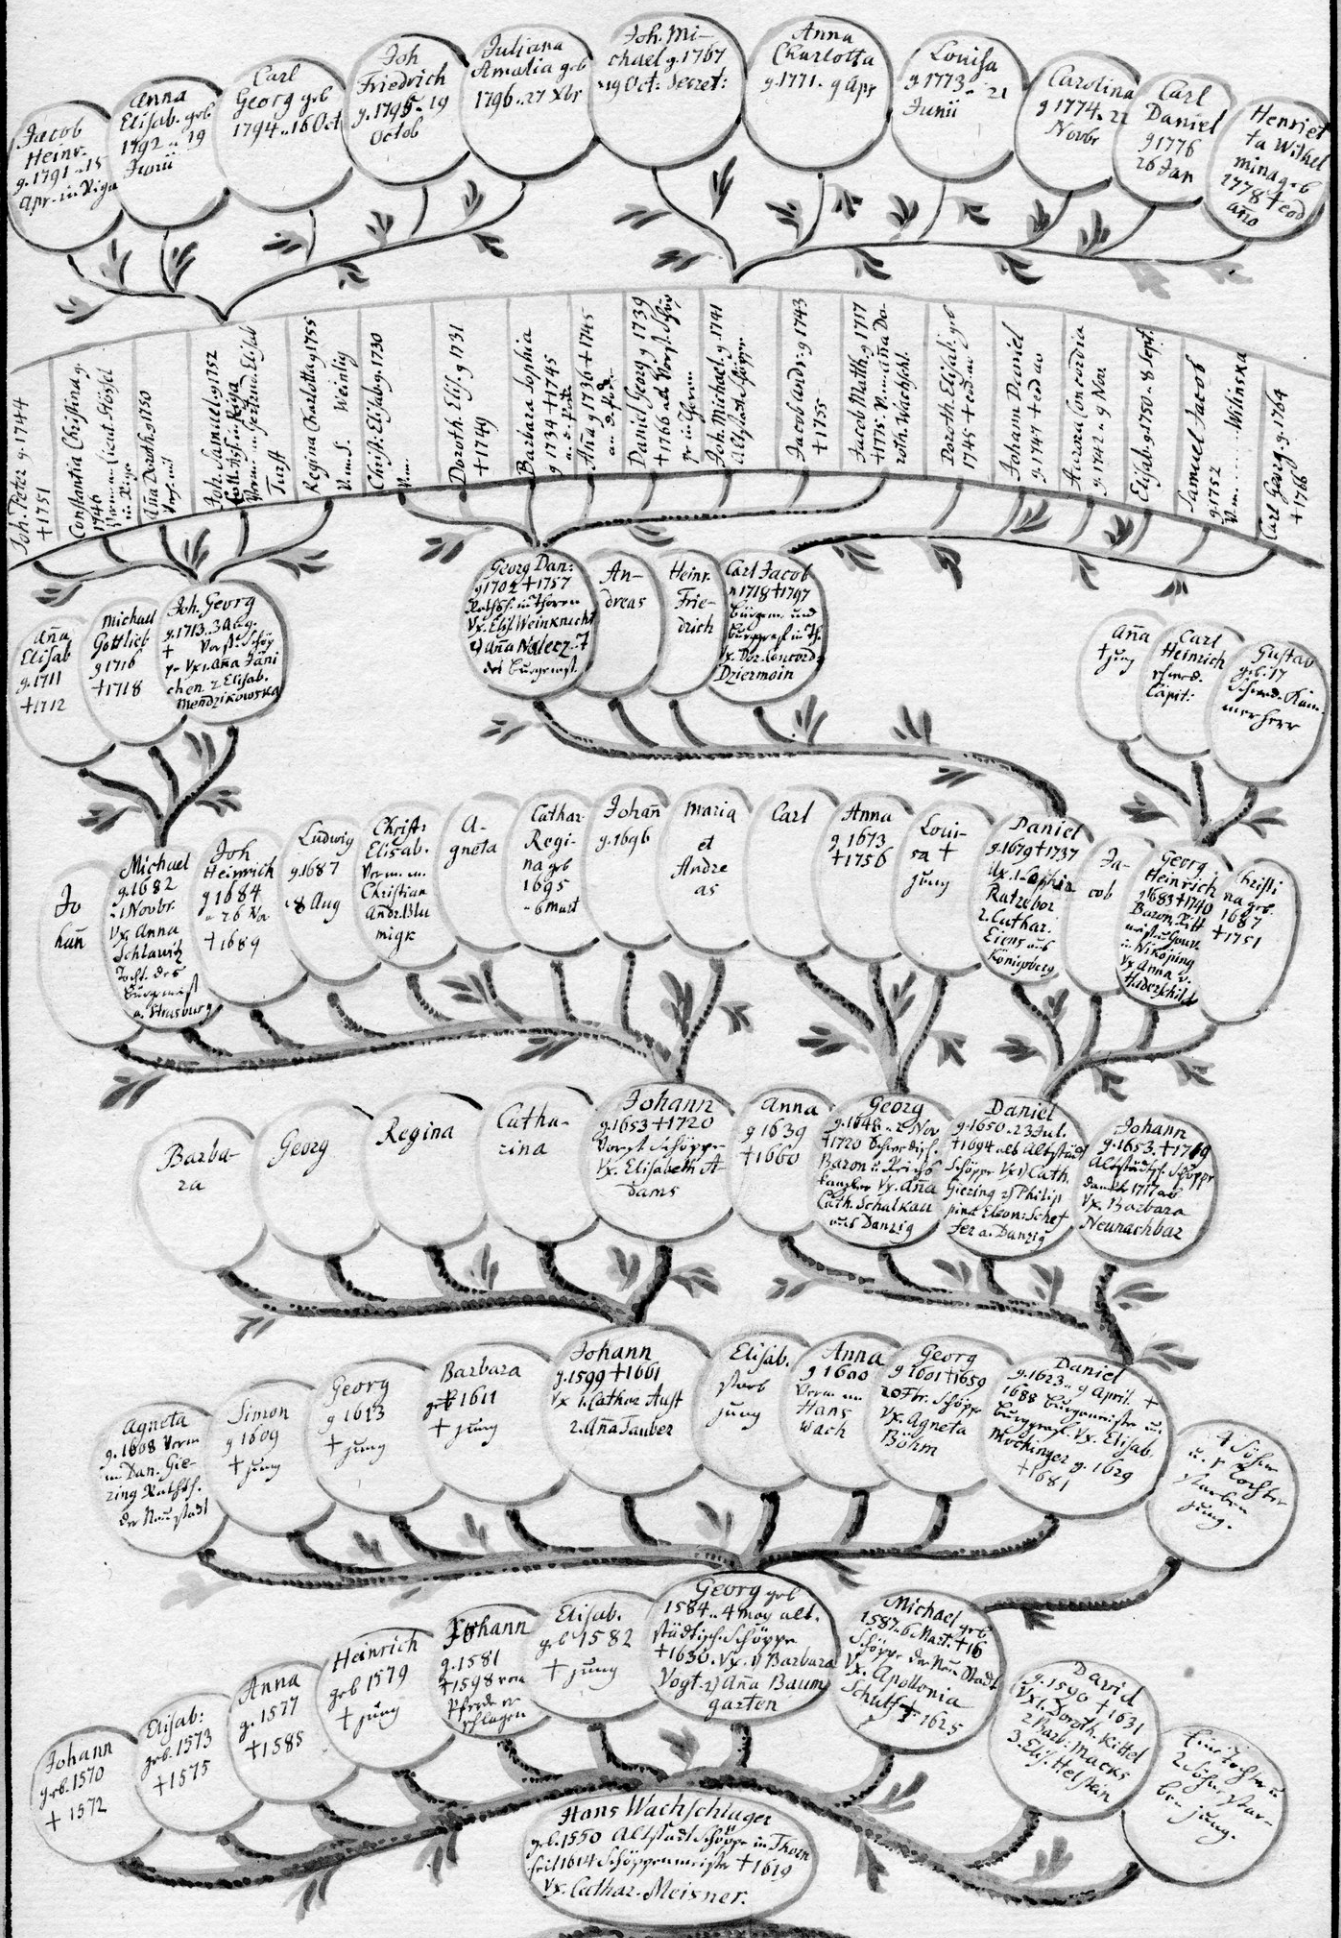 Jacob
Heinr.
g. 1791 .. 15
Apr. in Riga
Anna
Elisab. geb
1792 .. 19
Junii
Carl
Georg geb
1794 .. 16 Oct
Joh
Friedrich
g. 1795 .. 19
Octob
Juliana
Amalia geb
1796 .. 27 Xbr
Joh. Mi-
chael g. 1767
19 Oct: Secret:
Anna
Charlotta
g. 1771. 9 Apr
Louisa
g 1773 .. 21
Junii
Carolina
g 1774. 22
Novbr
Carl
Daniel
g 1776
26 Jan
Henriet
ta Wilhel
mina geb
1778 † eod
año
Joh. Peter g. 1744
† 1751
Constantia Christina g.
1746
in Riga
Aña Doroth. g 1750
Joh. Samuel g 1752
in Riga
Regina Charlotta g 1755
V. m. S. Weinlig
Christ. Elisab. g. 1730
V. m.
Doroth. Elis. g 1731
† 1749
Barbara Sophia
g 1734 † 1745
Aña g 1736 † 1745
Daniel Georg g 1739
† 1766 als Vorst. Schöp
pe in Thorn
Joh. Michael g. 1741
Altstadt Schöppe
Jacob Andr: g 1743
† 1755
Jacob Math. g 1717
† 1775. V. m. Aña Do-
roth. Wachschl.
Doroth. Elisab. geb
1745 † eod. ao
Johann Daniel
g. 1747 † eod ao
Aurora Concordia
g. 1742 .. 9 Nov
Elisab. g. 1750 .. 8 Sept.
Samuel Jacob
g. 1752
V. m. .... Wilinska
Carl Georg g. 1764
† 1766
Aña
Elisab
g. 1711
† 1712
Michael
Gottlieb
g 1716
† 1718
Joh. Georg
g. 1713 .. 3 Aug.
† Vorst. Schöp
pe Vx 1. Aña Jani
chen 2 Elisab.
Mendzikowska
Georg Dan:
g 1702 † 1757
Rathsh. in Thorn
Vx. Elis. Weinknecht
2) Aña Nalecz. T
des Burgermst.
An-
dreas
Heinr.
Frie-
drich
Carl Jacob
n 1718 † 1797
Bürgerm. und
Burggraf in Th.
Vx. Dor. Concord
Dziermoin
Aña
† jung
Carl
Heinrich
schwed.
Capit:
Gustav
geb: 17
Schwed. Kam-
merherr
Jo
hañ
Michael
g. 1682
.. 1 Novbr.
Vx Anna
Schlawitz
Tocht. des
Burgemeist
a. Strasburg
Joh
Heinrich
g 1684
.. 26 No
† 1689
Ludwig
g. 1687
.. 8 Aug
Christ:
Elisab.
Verm. m.
Christian
Andr. Blu
migk
A-
gneta
Cathar
Regi-
na geb
1695
.. 6 Mart
Johañ
g. 1696
Maria
et
Andre
as
Carl
Anna
g 1673
† 1756
Loui-
sa †
jung
Daniel
g. 1679 † 1737
Ux. 1. Sophia
Ratzebor
2. Cathar.
Eiens aus
Königsberg
Ja-
cob
Georg
Heinrich
g 1683 † 1740
Baron, Ritt
in Niköping
Vx Anna v.
Haderschilt
Christi
na geb.
1687
† 1751
Barba-
ra
Georg
Regina
Catha-
rina
Johann
g. 1653 † 1720
Vorst. Schöppe
Vx. Elisabeth A-
dams
Anna
g 1639
† 1660
Georg
g. 1648 .. 2 Nov
† 1720 Schwedisch.
Baron u. Kriegs
kanzler Vx. Aña
Cath. Schalkau
aus Danzig
Daniel
g. 1650 .. 23 Jul.
† 1694 als Altstädt
Schöppe Vx 1) Cath.
Giering 2) Philip
pina Eleon: Schef
fer a. Danzig
Johann
g. 1653. † 1719
Altstädtsch. Schöppe
dankt 1717 ab
Vx. Barbara
Neunachbar
Agneta
g. 1608 Verm
m. Dan. Gie-
ring Rathsh.
der Neustadt
Simon
g 1609
† jung
Georg
g 1613
† jung
Barbara
geb 1611
† jung
Johann
g. 1599 † 1661
Vx 1. Cathar Aust
2. Aña Tauber
Elisab.
starb
jung
Anna
g 1600
Verm. m.
Hans
Wach
Georg
g 1601 † 1659
20 Fbr. Schöppe
Vx. Agneta
Böhm
Daniel
g. 1623 .. 9 April. †
1688 Burgemeister u.
Burggraf. Vx. Elisab.
Mochinger g. 1629
† 1681
4 Söhne
u. 1 Tochter
starben
jung.
Johann
geb. 1570
† 1572
Elisab:
geb. 1573
† 1575
Anna
g. 1577
† 1585
Heinrich
geb 1579
† jung
Johann
g. 1581
† 1598 vom
Pferde er-
schlagen
Elisab.
geb 1582
† jung
Georg geb
1584 .. 4 may alt-
städtisch. Schöppe
† 1630. Vx. 1) Barbara
Vogt. 2) Aña Baum
garten
Michael geb
1587. 6 Mart. † 16
Schöppe der Neu Stadt
Vx. Apollonia
Schultz † 1625
David
g. 1590 † 1631
Vx 1. Doroth. Kittel
2 Barb: Macks
3. Elis. Helstein
Eine Tochter u
2 Söhne star-
ben jung.
Hans Wachschlager
geb. 1550 Altstadt Schöppe in Thorn
seit 1614 Schöppenmeister † 1619
Vx. Cathar. Meisner.